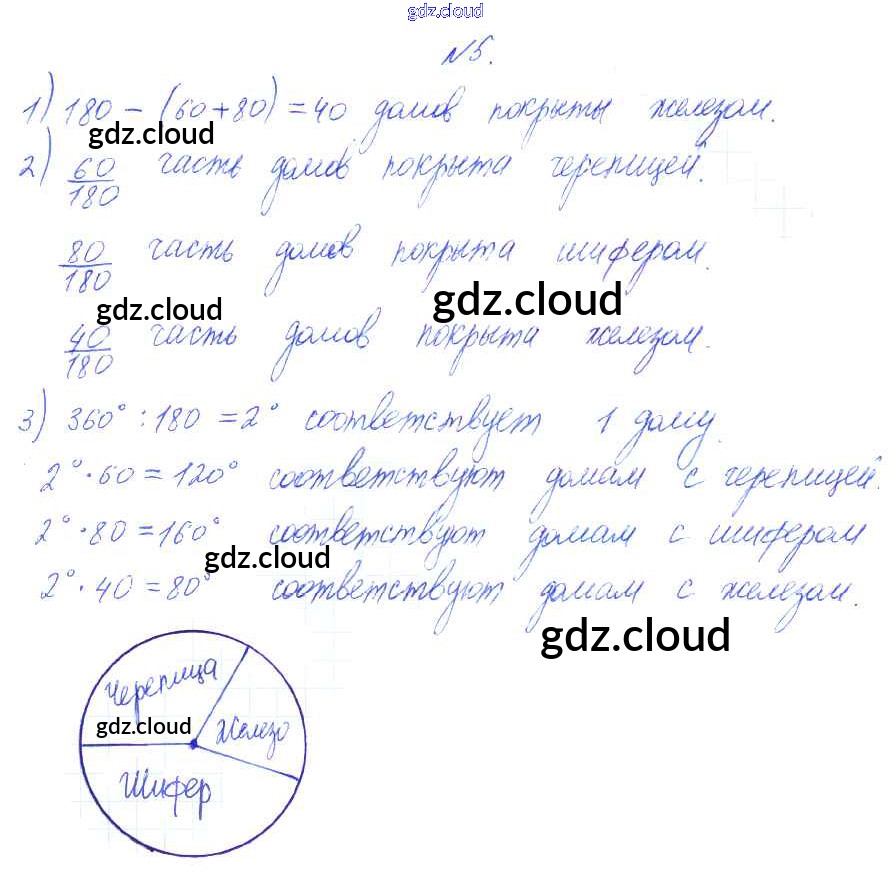 gdz.cloud
№5.
1) 180 - (60+80) = 40 домов покрыты железом.
gdz.cloud
2) 60/180 часть домов покрыта черепицей.
80/180 часть домов покрыта шифером.
gdz.cloud gdz.cloud
40/180 часть домов покрыта железом.
3) 360° : 180 = 2° соответствует 1 дому.
2° · 60 = 120° соответствуют домам с черепицей.
2° · 80 = 160° соответствуют домам с шифером
gdz.cloud
2° · 40 = 80° соответствуют домам с железом.
gdz.cloud
Черепица
gdz.cloud Железо
Шифер